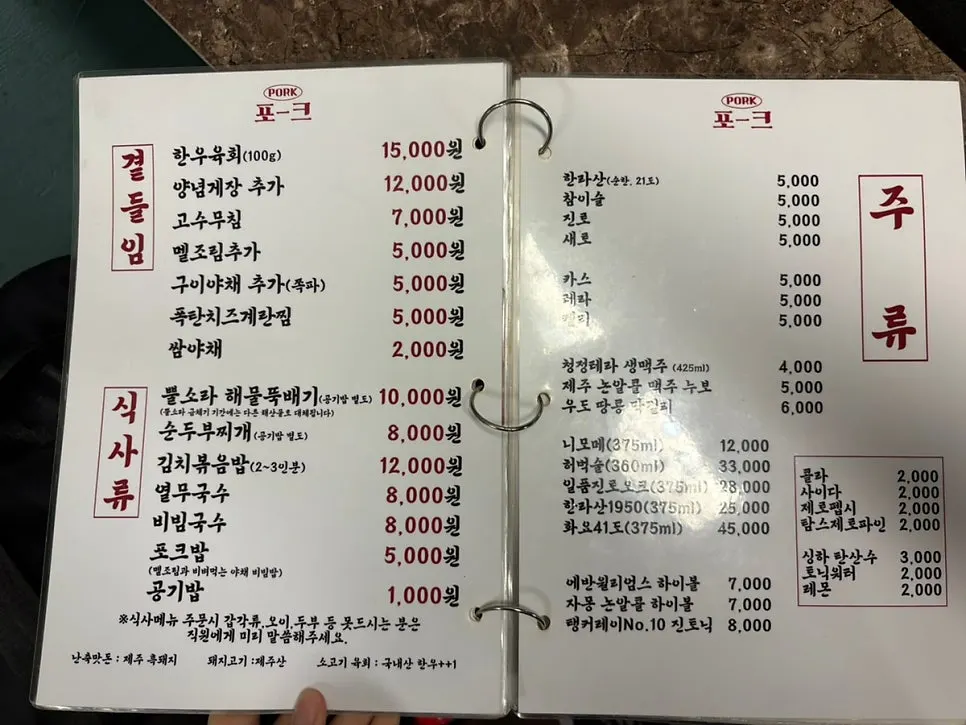 PORK
포크
곁들임
한우육회(100g) 15,000원
양념게장 추가 12,000원
고수무침 7,000원
멜조림추가 5,000원
구이야채 추가(쪽파) 5,000원
폭탄치즈계란찜 5,000원
쌈야채 2,000원
식사류
뿔소라 해물뚝배기(공기밥 별도) 10,000원
(뿔소라 금채기 기간에는 다른 해산물로 대체됩니다)
순두부찌개(공기밥 별도) 8,000원
김치볶음밥(2~3인분) 12,000원
열무국수 8,000원
비빔국수 8,000원
포크밥 5,000원
(멜조림과 비벼먹는 야채 비빔밥)
공기밥 1,000원
※식사메뉴 주문시 갑각류,오이,두부 등 못드시는 분은
직원에게 미리 말씀해주세요.
난축맛돈 : 제주 흑돼지 돼지고기 :제주산 소고기 육회 : 국내산 한우++1
PORK
포크
주류
한라산(순한, 21도) 5,000
참이슬 5,000
진로 5,000
새로 5,000
카스 5,000
테라 5,000
켈리 5,000
청정테라 생맥주 (425ml) 4,000
제주 논알콜 맥주 누보 5,000
우도 땅콩 막걸리 6,000
니모메(375ml) 12,000
허벅술(360ml) 33,000
일품진로오크(375ml) 28,000
한라산1950(375ml) 25,000
화요41도(375ml) 45,000
에반윌리엄스 하이볼 7,000
자몽 논알콜 하이볼 7,000
탱커레이No.10 진토닉 8,000
콜라 2,000
사이다 2,000
제로펩시 2,000
탐스제로파인 2,000
싱하 탄산수 3,000
토닉워터 2,000
레몬 2,000